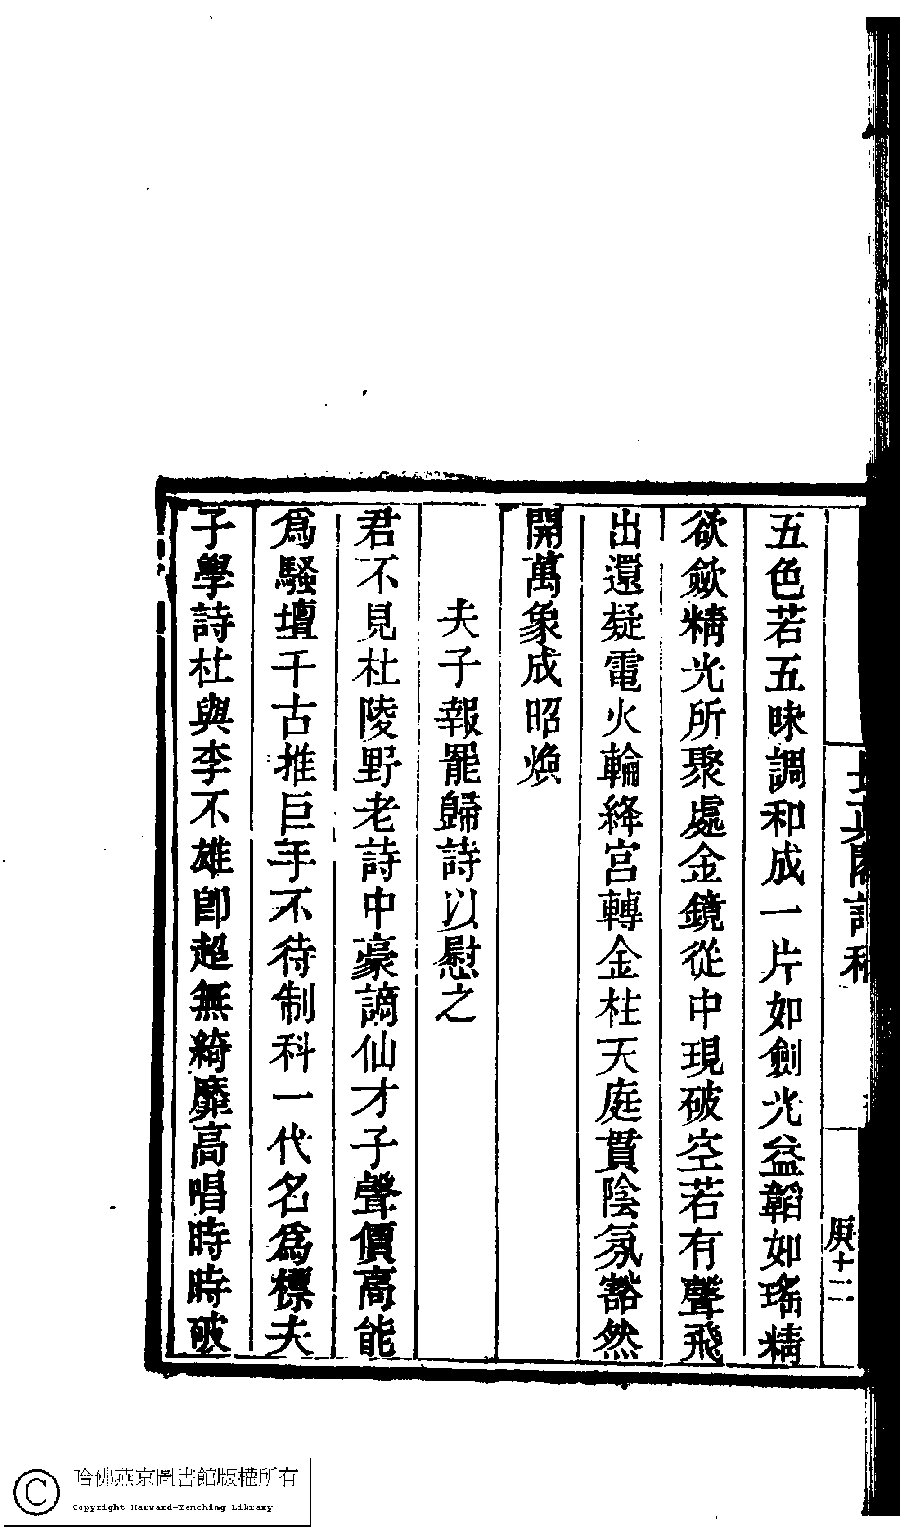 五色若五味調和成一片如劍光益韜如瑤精
欲歛精光所聚處金鏡從中現破空若有聲飛
出還疑電火輪絳宮轉金柱天庭貫陰氛豁然
開萬象成昭煥
夫子報罷歸詩以慰之
君不見杜陵野老詩中豪謫仙才子聲價高能
爲騷壇千古推巨手不待制科一代名爲標夫
子學詩杜與李不雄卽超無綺靡高唱時時破
哈佛燕京圖書館版權所有
Copyright Harvard-Yenching Library